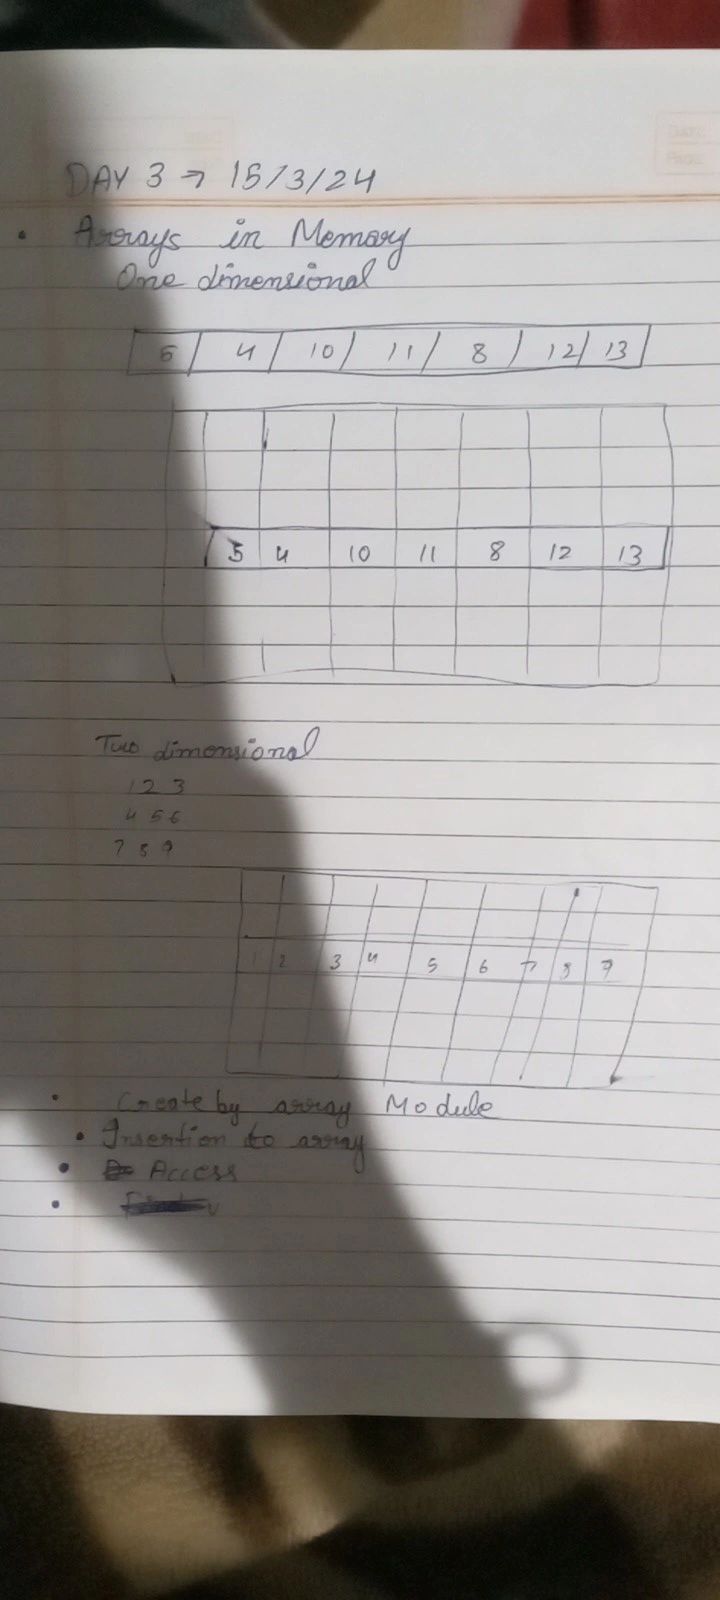 DAY 3 → 15/3/24
• Arrays in Memory
One dimensional
5 4 10 11 8 12 13
5 4 10 11 8 12 13
Two dimensional
1 2 3
4 5 6
7 8 9
1 2 3 4 5 6 7 8 9
• Create by array Module
• Insertion to array
• Access
•